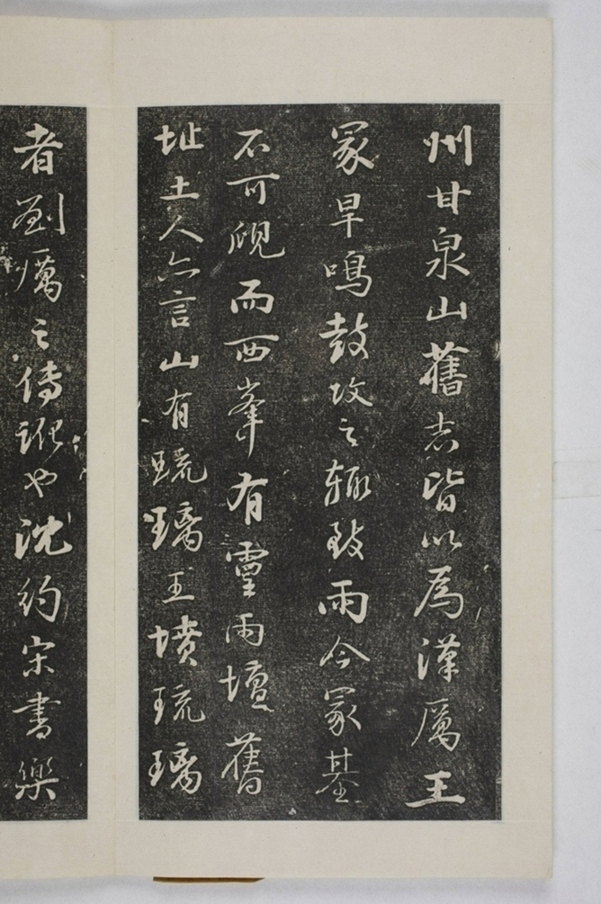 州甘泉山舊志皆以爲漢厲王
冢旱鳴鼓攻之輒致雨今冢基
不可覛而西峯有靈雨壇舊
址土人亦言山有琉璃王墳琉璃
者劉厲之傳訛也沈約宋書樂